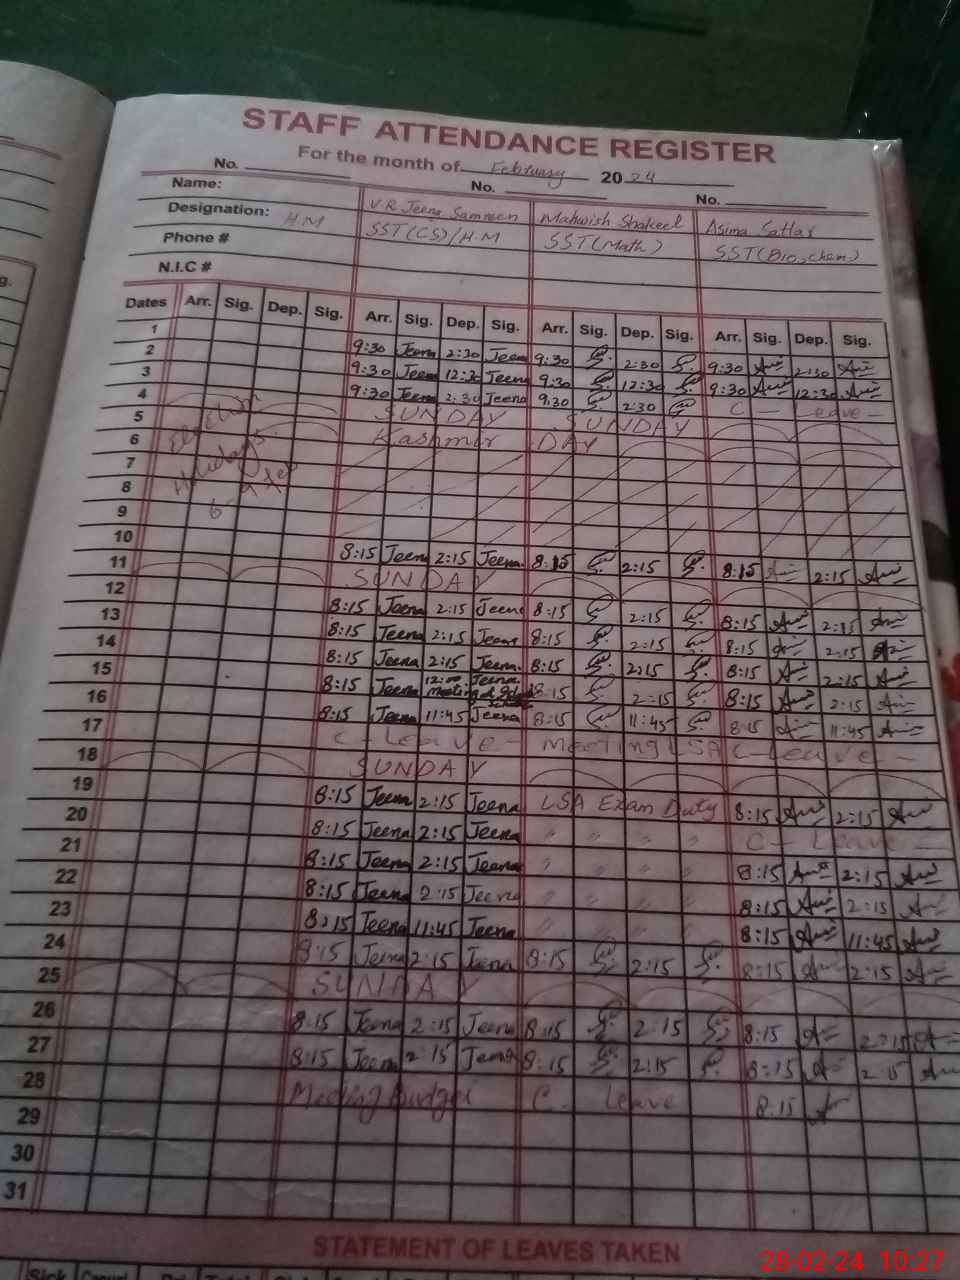 STAFF ATTENDANCE REGISTER
For the month of February 2024
No. No. No.
Name: V.R Jeena Sammeen Mahwish Shakeel Asima Sattar
Designation: H M SST(CS)/H.M SST(Math) SST(Bio,chem)
Phone #
N.I.C #
Dates Arr. Sig. Dep. Sig. Arr. Sig. Dep. Sig. Arr. Sig. Dep. Sig. Arr. Sig. Dep. Sig.
1 9:30 Jeena 2:30 Jeena 9:30 2:30 9:30 2:30
2 9:30 Jeena 12:30 Jeena 9:30 12:30 9:30 12:30
3 9:30 Jeena 2:30 Jeena 9:30 2:30 C - Leave -
4 SUNDAY SUNDAY
5 Kashmir DAY
6 Election
7 Holidays
8 6 - 9 Feb
9
10 8:15 Jeena 2:15 Jeena 8:15 2:15 8:15 2:15
11 SUNDAY
12 8:15 Jeena 2:15 Jeena 8:15 2:15 8:15 2:15
13 8:15 Jeena 2:15 Jeena 8:15 2:15 8:15 2:15
14 8:15 Jeena 2:15 Jeena 8:15 2:15 8:15 2:15
15 8:15 Jeena 12:00 Jeena meeting 8:15 2:15 8:15 2:15
16 8:15 Jeena 11:45 Jeena 8:15 11:45 8:15 11:45
17 C - Leave - Meeting LSA C - Leave -
18 SUNDAY
19 8:15 Jeena 2:15 Jeena LSA Exam Duty 8:15 2:15
20 8:15 Jeena 2:15 Jeena " " " " C - Leave -
21 8:15 Jeena 2:15 Jeena " " " " 8:15 2:15
22 8:15 Jeena 2:15 Jeena " " " " 8:15 2:15
23 8:15 Jeena 11:45 Jeena " " " " 8:15 11:45
24 8:15 Jeena 2:15 Jeena 8:15 2:15 8:15 2:15
25 SUNDAY
26 8:15 Jeena 2:15 Jeena 8:15 2:15 8:15 2:15
27 8:15 Jeena 2:15 Jeena 8:15 2:15 8:15 2:15
28 Meeting Budget C - Leave 8:15
29
30
31
STATEMENT OF LEAVES TAKEN
Sick Casual
28-02-24 10:27